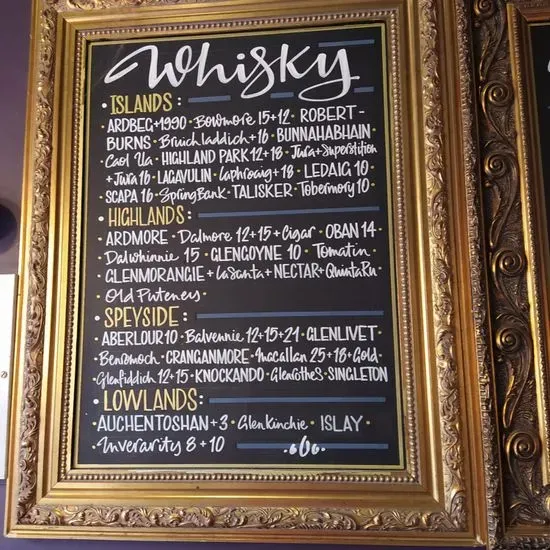 Whisky
• ISLANDS:
ARDBEG+1990 • Bowmore 15+12 • ROBERT-
BURNS • Bruichladdich+16 • BUNNAHABHAIN •
Caol Ila • HIGHLAND PARK 12+18 • Jura+Superstition
+Jura 16 • LAGAVULIN • Laphroaig+18 • LEDAIG 10 •
SCAPA 16 • SpringBank • TALISKER • Tobermory 10 •
HIGHLANDS:
ARDMORE • Dalmore 12+15+Cigar • OBAN 14 •
Dalwhinnie 15 • GLENGOYNE 10 • Tomatin •
GLENMORANGIE+LaSanta+NECTAR+QuintaRu
• Old Puteney •
SPEYSIDE:
ABERLOUR 10 • Balvennie 12+15+21 • GLENLIVET •
Benromoch • CRANGANMORE • Macallan 25+18+Gold •
Glenfiddich 12+15 • KNOCKANDO • Glenrothes • SINGLETON
LOWLANDS:
AUCHENTOSHAN+3 • GlenKinchie • ISLAY •
Inverarity 8+10